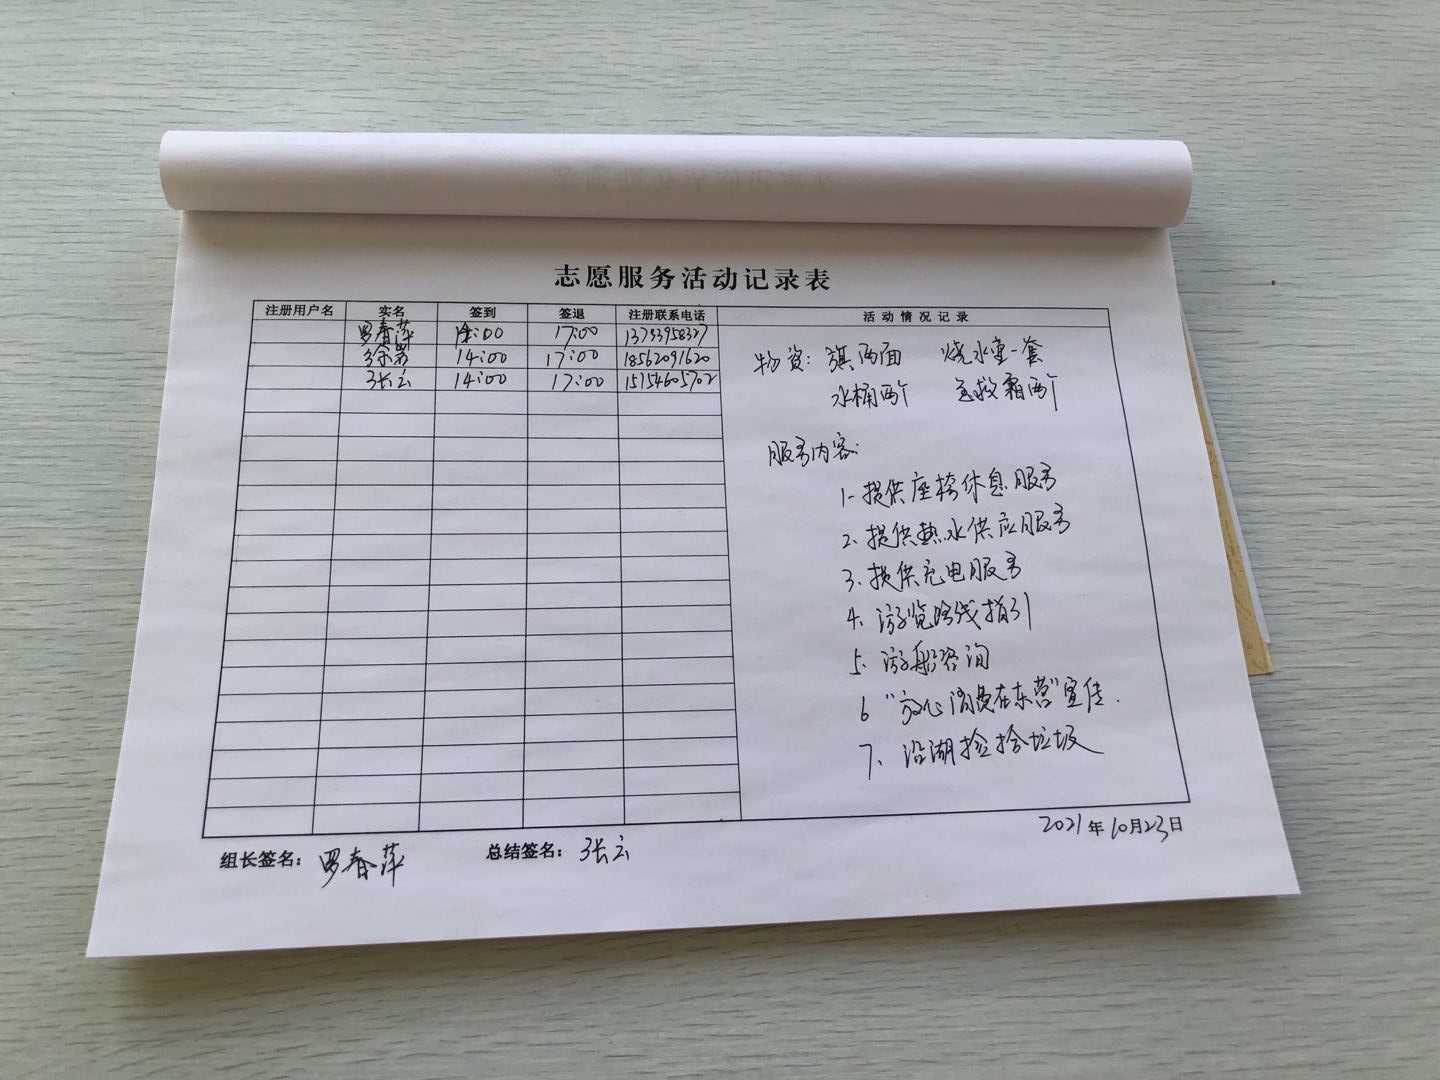 志愿服务活动记录表
注册用户名 实名 签到 签退 注册联系电话 活动情况记录
罗春萍 14:00 17:00 13793958327
徐男 14:00 17:00 18562091620
张云 14:00 17:00 15154605702
物资: 旗两面 烧水壶一套
水桶两个 急救霜两个
服务内容:
1. 提供座椅休息服务
2. 提供热水供应服务
3. 提供充电服务
4. 游览路线指引
5. 游船咨询
6 "放心消费在东营"宣传.
7、沿湖捡拾垃圾
2021年10月23日
组长签名: 罗春萍 总结签名: 张云